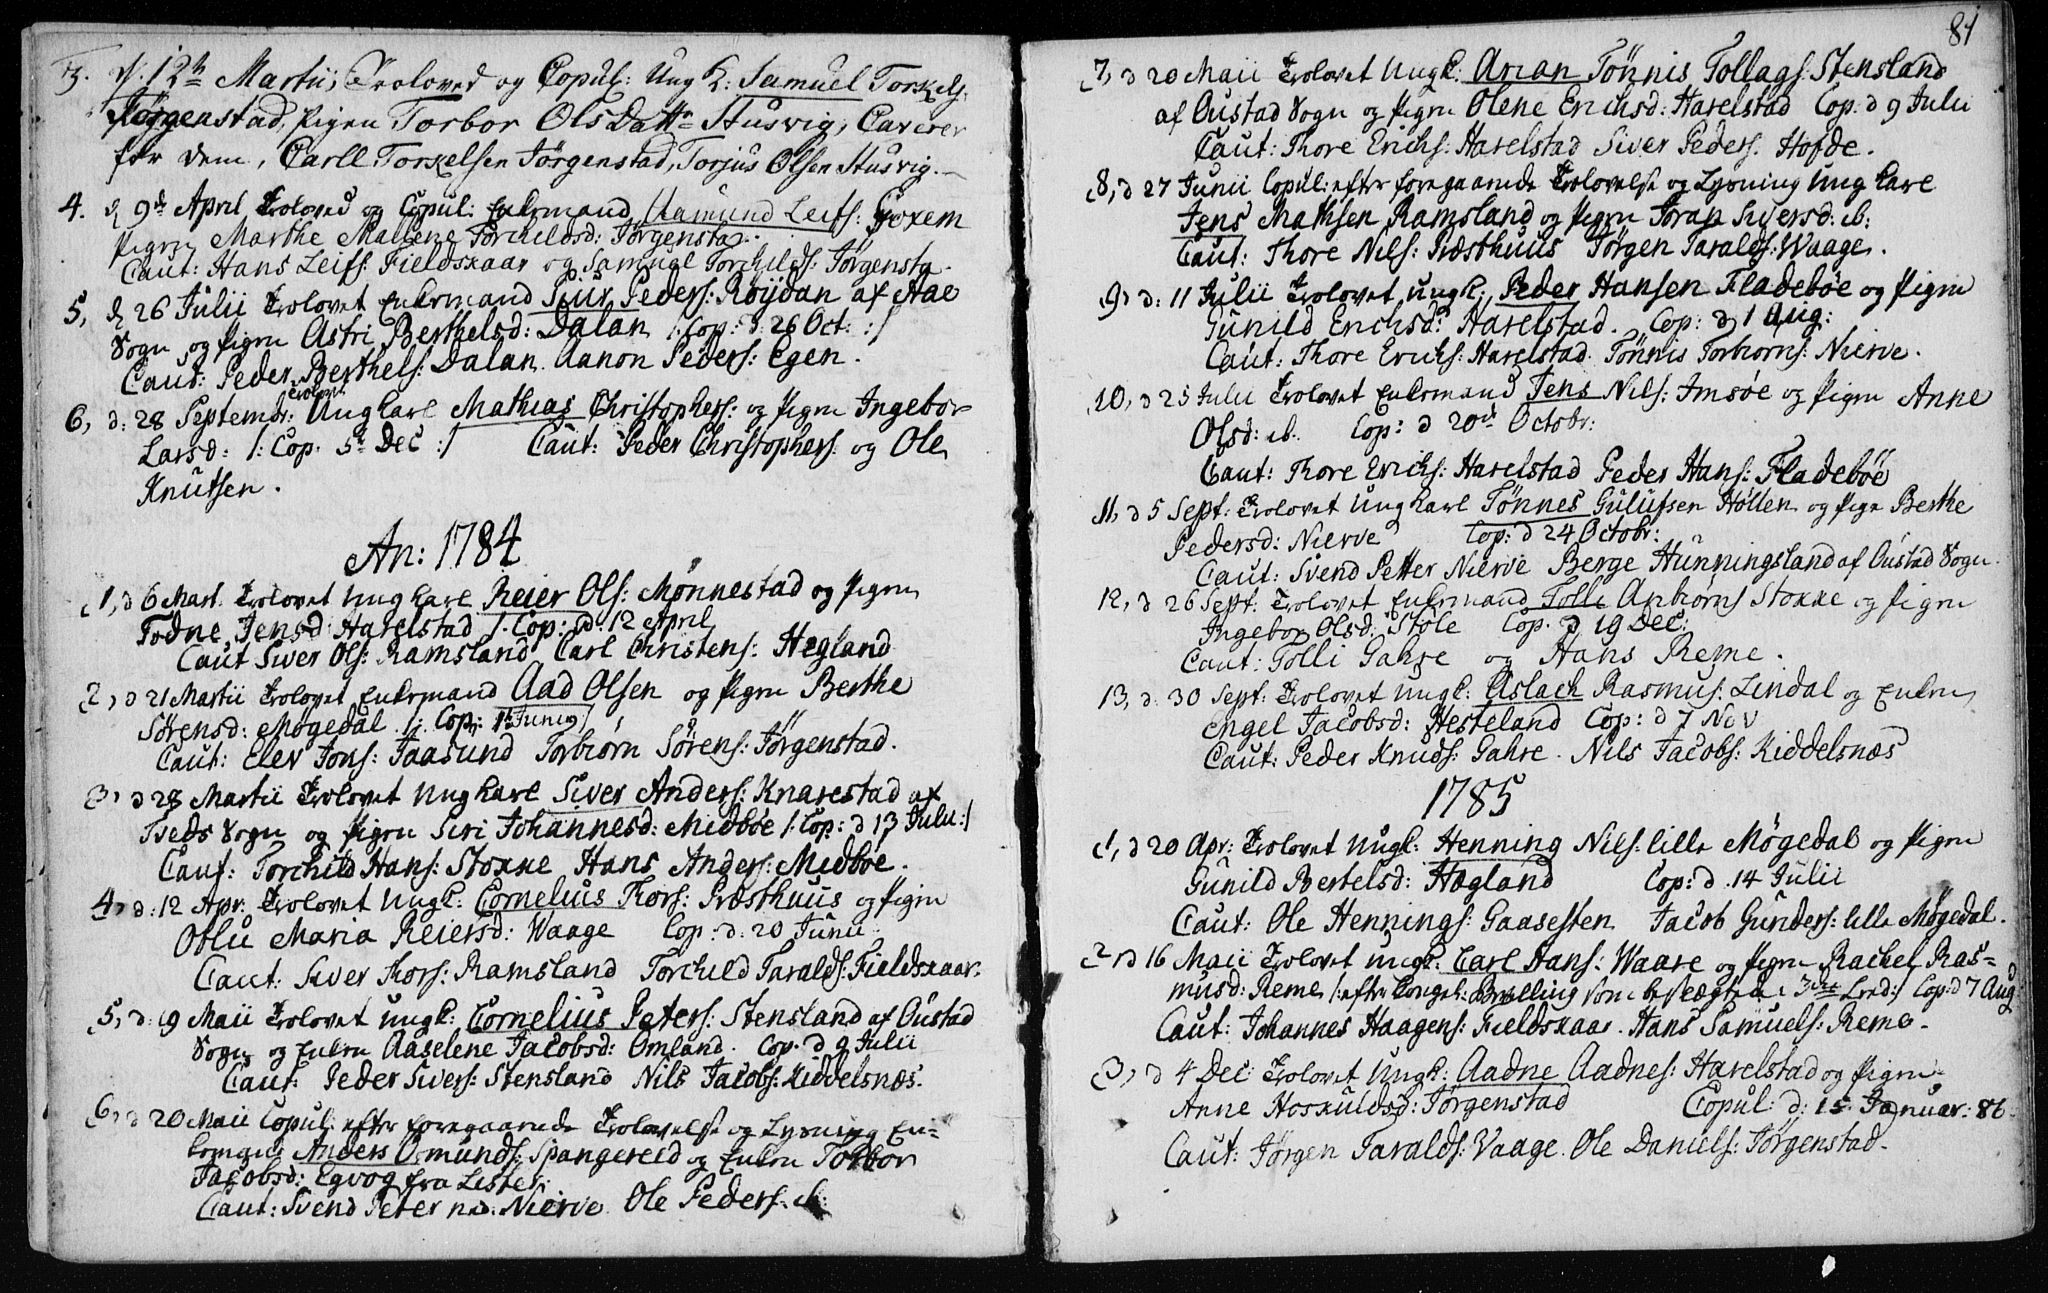 3. d. 12te Martii, Troloved og Copul: Ung K: Samuel Torkels.
Jørgenstad, Pigen Torbor Ols Datt. Husvig, Caverer
for dem, Carll Torkelsen Jørgenstad, Torjus Olsen Husvig.
4. d 9de April Troloved og Copul: Enkemand Aamund Leifs: Foxem
Pigen Marthe Mallene Torchildsd: Jørgensta.
Caut: Hans Leifs: Fieldskaar og Samuel Torchilds: Jørgensta.
5, d 26 Julii Trolovet Enkemand Siur Peders: Røijdan af Aae
Sogn og Pigen Astri Berthelsd: Dalan /: Cop: d: 26 Oct: :/
Caut: Peder Berthels: Dalan. Aanon Peders: Egen.
6, d: 28 Septembr: trolovet Ungkarl Mathias Christophers: og Pigen Ingebor
Larsd: /: Cop. 5te Dec :/ Caut: Peder Christophers: og Ole
Knutsen.
An: 1784
1, d 6 Mart. Trolovet Ungkarl Reier Ols: Mønnestad og Pigen
Todne Jensd: Harelstad /: Cop: d: 12 April
Caut Siver Ols: Ramsland Carl Christens: Hegland
2, d 21 Martii Trolovet Enkemand Aad Olsen og Pigen Berthe
Sørensd: Møgedal /: Cop: 1te Junii :/
Caut: Elev Jons: Faasund Torbiørn Sørens: Jørgenstad.
3, d 28 Martii Trolovet Ungkarl Siver Anders: Knarestad af
Tveds Sogn og Pigen Siri Johannesd: Midbøe /: Cop: d 13 Julii :/
Caut: Torchild Hans: Stokke Hans Anders: Midbøe.
4, d: 12 Apr. Trolovet Ungk: Cornelius Thors: Præsthuus og Pigen
Oblu Maria Reiersd: Waage Cop: d: 20 Junii
Caut: Siver Thors: Ramsland Torchild Taralds: Fieldskaar.
5, d: 9 Maii Trolovet Ungk: Cornelius Peters: Stensland af Oustad
Sogn og Enken Aaselene Jacobsd: Omland. Cop. d 9 Julii
Caut: Peder Sivers: Stensland Nils Jacobs: Kiddelsnæs.
6, d 20 Maii Copul: efter foregaaende Trolovelse og Lysning En-
kemand Anders Osmunds: Spangereid og Enken Torbor
Jacobsd: Egvog fra Lister.
Caut: Svend Peter Nierve Ole Peders: ib:
81
7, d 20 Maii Trolovet Ungk: Arian Tönnis Tollags: Stensland
af Oustad Sogn og Pigen Olene Erichsd: Harelstad Cop: d 9 Julii
Caut: Thore Erichs: Harelstad Siver Peders: Hofde.
8, d 27 Junii Copul: efter foregaaende Trolovelse og Lysning Ungkarl
Jens Mathsen Ramsland og Pigen Joran Siversd: ib:
Caut: Thore Nils: Præsthuus Jørgen Taralds: Waage.
9, d: 11 Julii Trolovet Ungk: Peder Hansen Fladebøe og Pigen
Gunild Erichsd: Harelstad. Cop: d 1 Aug:
Caut: Thore Erichs: Harelstad. Tönnis Torbiorns: Nierve.
10, d 25 Julii Trolovet Enkemand Jens Nils: Imsøe og Pigen Anne
Olsd: ib. Cop: d 20de Octobr:
Caut: Thore Erichs: Harelstad Peder Hans: Fladebøe
11, d 5 Sept: Trolovet Ungkarl Tönnes Gulufsen Høllen og Pige Berthe
Pedersd: Nierve Cop: d 24 Octobr:
Caut: Svend Petter Nierve Berge Hunningsland af Oustad Sogn.
12, d 26 Sept: Trolovet Enkemand Tolle Anbiorns Stokke og Pigen
Ingebor Olsd: Støle Cop. d. 19 Dec:
Caut: Tolli Gahre og Hans Reme.
13, d: 30 Sept: Trolovet Ungk: Aslach Rasmus: Lindal og Enken
Engel Jacobsd: Hesteland Cop: d 7 Nov
Caut: Peder Knuds: Gahre. Nils Jacobs: Kiddelsnæs
1785
1, d 20 Apr: Trolovet Ungk: Henning Nils: lille Møgedal og Pigen
Gunild Bertelsd: Hægland Cop: d. 14 Julii
Caut: Ole Hennings: Gaasesten Jacob Gunders: lille Møgedal.
2, d 16 Maii Trolovet Ungk: Carl Hans: Waare og Pigen Rachel Ras-
musd: Reme /: efter Kongel: Bevilling som besvogrede i 3die Leed :/ Cop: d 7 Aug
Caut: Johannes Haagens: Fieldskaar. Hans Samuels: Reme.
3, d 4 Dec: Trolovet Ungk: Aadne Aadnes: Harelstad og Pigen
Anne Hoskuldsd: Jørgenstad Copul: d: 15 Januar: 86.
Caut: Jørgen Taralds: Vaage. Ole Daniels: Jørgenstad.